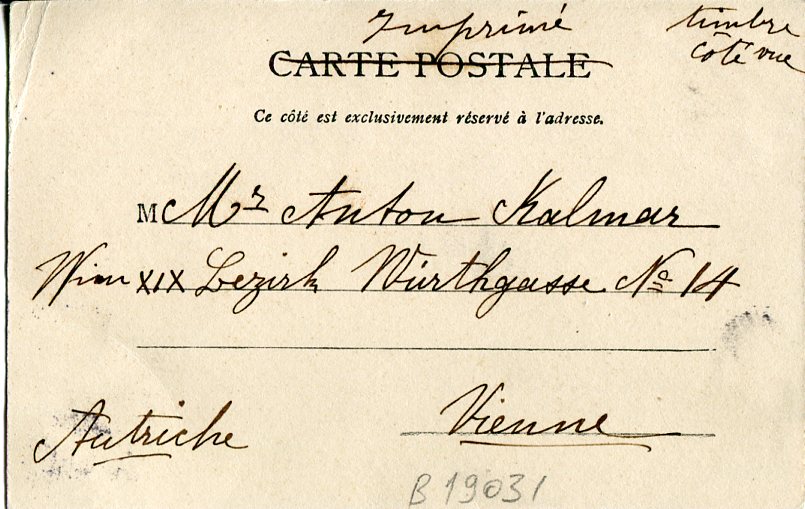 Imprimé
timbre
côté vue
CARTE POSTALE
Ce côté est exclusivement réservé à l'adresse.
M Mr Anton Kalmar
Wien XIX Bezirk Würthgasse No 14
Autriche
Vienne
B 19031